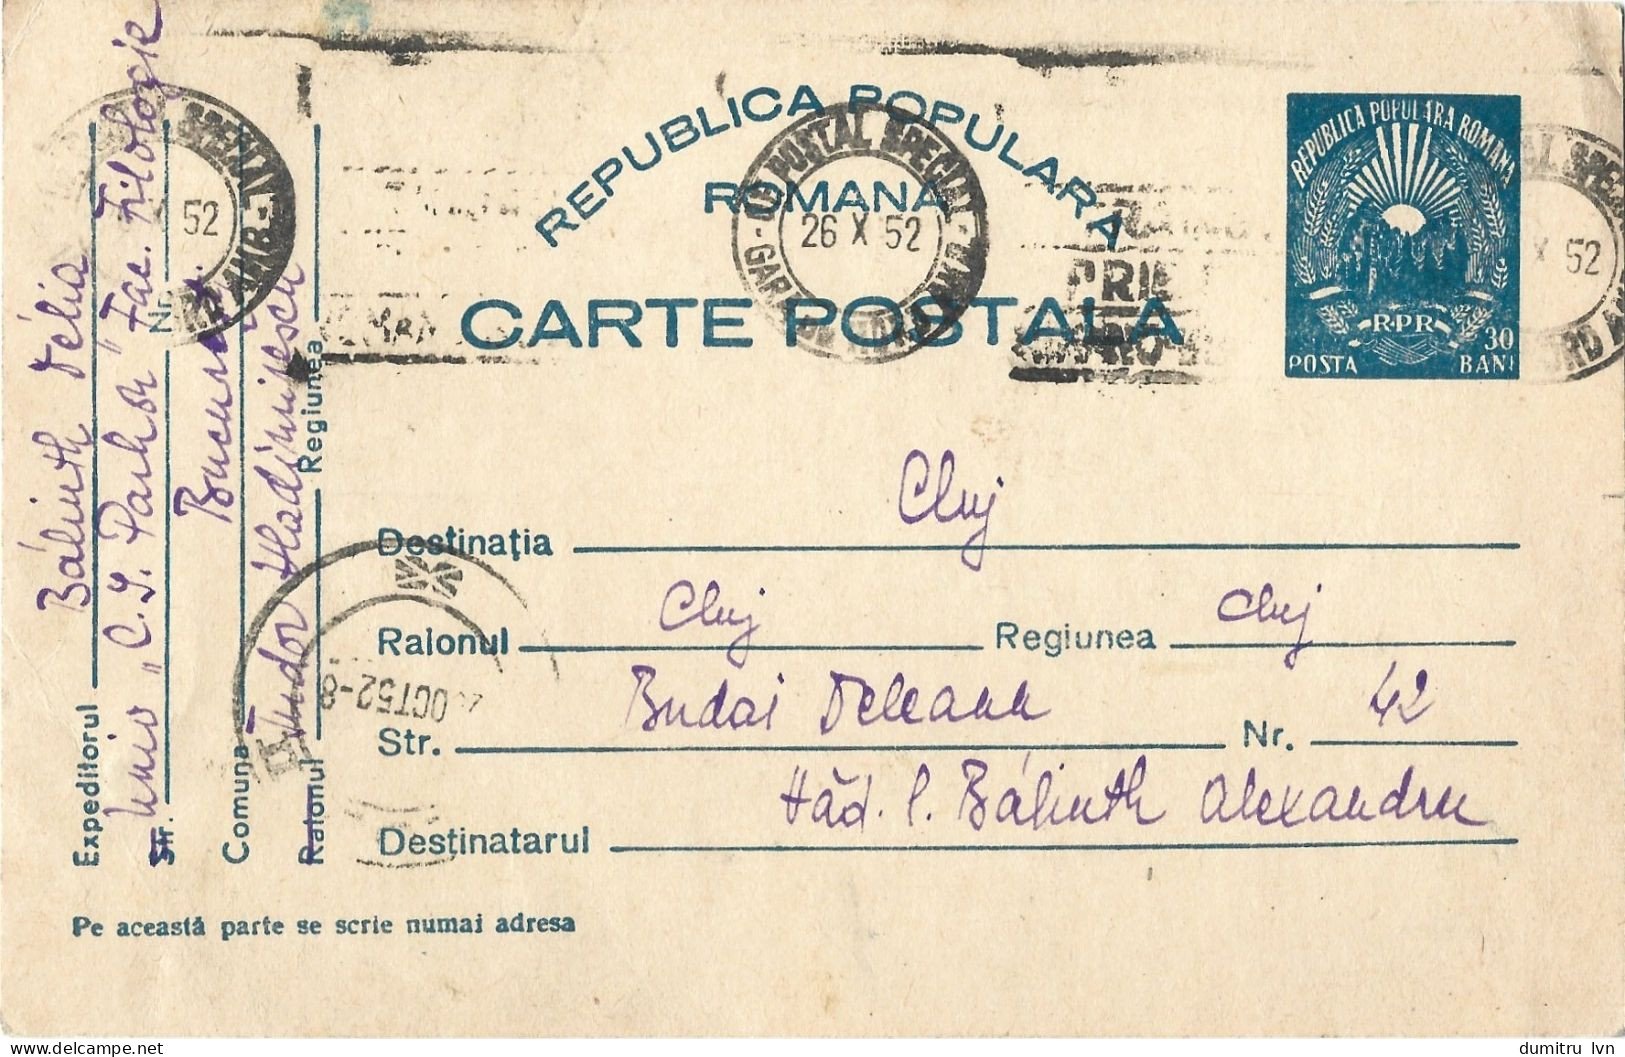 REPUBLICA POPULARA
ROMANA
CARTE POSTALA
REPUBLICA POPULARA ROMANA
RPR
30
POSTA BANI
POSTAL SPECIAL
26 X 52
52
SPECIAL
X 52
Destinația Cluj
Raionul Cluj Regiunea Cluj
Str. Budai Deleanu Nr. 42
Destinatarul Văd. l. Bálinth Alexandru
Pe această parte se scrie numai adresa
Expeditorul Bálinth Délia
Str. Univ „C. I. Parhon" Fac. Filologie
Nr.
Comuna București
Raionul Tudor Vladimirescu
Regiunea
OCT 52-8
dumitru_lvn